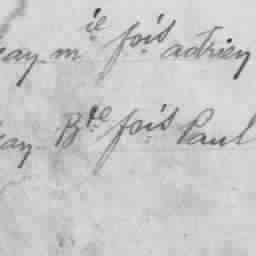 ay mie fois adrien
ay Bte fois Paul